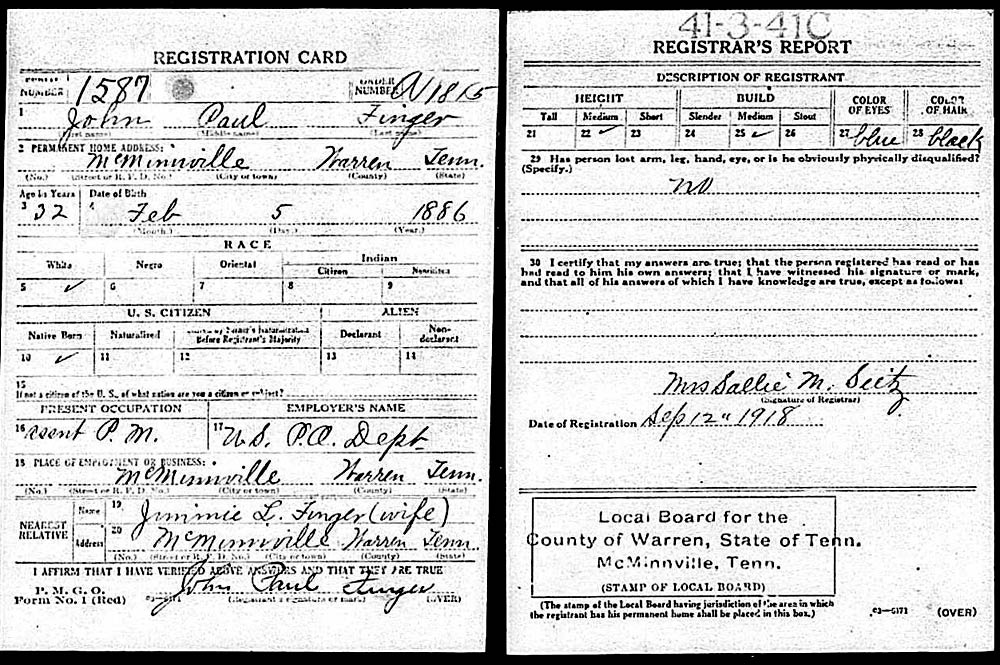 REGISTRATION CARD
SERIAL NUMBER 1587 ORDER NUMBER
1 John Paul Finger
(First name) (Middle name) (Last name)
2 PERMANENT HOME ADDRESS:
McMinnville Warren Tenn.
(No.) (Street or R. F. D. No.) (City or town) (County) (State)
Age in Years Date of Birth
3 32 4 Feb 5 1886
(Month.) (Day.) (Year.)
RACE
White Negro Oriental Indian
Citizen Noncitizen
5 ✓ 6 7 8 9
U. S. CITIZEN ALIEN
Native Born Naturalized Citizen by Father's Naturalization Before Registrant's Majority Declarant Non-declarant
10 ✓ 11 12 13 14
15
If not a citizen of the U. S., of what nation are you a citizen or subject?
PRESENT OCCUPATION EMPLOYER'S NAME
16 P. M. 17 U.S. P.O. Dept
18 PLACE OF EMPLOYMENT OR BUSINESS:
McMinnville Warren Tenn.
(No.) (Street or R. F. D. No.) (City or town) (County) (State)
NEAREST RELATIVE
Name 19 Jimmie L. Finger (wife)
Address 20 McMinnville Warren Tenn.
(No.) (Street or R. F. D. No.) (City or town) (County) (State)
I AFFIRM THAT I HAVE VERIFIED ABOVE ANSWERS AND THAT THEY ARE TRUE
P. M. G. O.
Form No. 1 (Red) 03—6171 John Paul Finger
(Registrant's signature or mark) (OVER)
41-3-41C
REGISTRAR'S REPORT
DESCRIPTION OF REGISTRANT
HEIGHT BUILD COLOR OF EYES COLOR OF HAIR
Tall Medium Short Slender Medium Stout
21 22 ✓ 23 24 25 ✓ 26 27 blue 28 black
29 Has person lost arm, leg, hand, eye, or is he obviously physically disqualified?
(Specify.)
no
30 I certify that my answers are true; that the person registered has read or has
had read to him his own answers; that I have witnessed his signature or mark,
and that all of his answers of which I have knowledge are true, except as follows:
Mrs Sallie M. Seitz
(Signature of Registrar)
Date of Registration Sep 12" 1918
Local Board for the
County of Warren, State of Tenn.
McMinnville, Tenn.
(STAMP OF LOCAL BOARD)
(The stamp of the Local Board having jurisdiction of the area in which
the registrant has his permanent home shall be placed in this box.)
03—6171 (OVER)